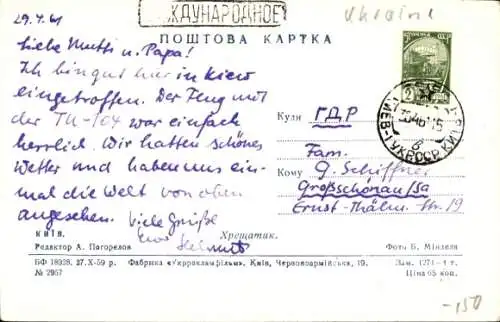 МЕЖДУНАРОДНОЕ
Ukraine
29.4.61
ПОШТОВА КАРТКА
Liebe Mutti u. Papa!
Ich bin gut hier in Kiew
eingetroffen. Der Flug mit
der TU-104 war einfach
herrlich. Wir hatten schönes
Wetter und haben uns ein-
mal die Welt von oben
angesehen. Viele Grüße
Euer Helmut
Куди ГДР
Fam.
Кому G. Schiffner
Großschönau/Sa
Ernst-Thälm.-Str. 19
КИЇВ. Хрещатик.
Редактор А. Погорелов Фото Б. Мінделя
БФ 18928. 27.X-59 р. Фабрика «Укррекламфільм». Київ, Червоноармійська, 19. Зам. 1271-т
№ 2957 Ціна 65 коп.
-150